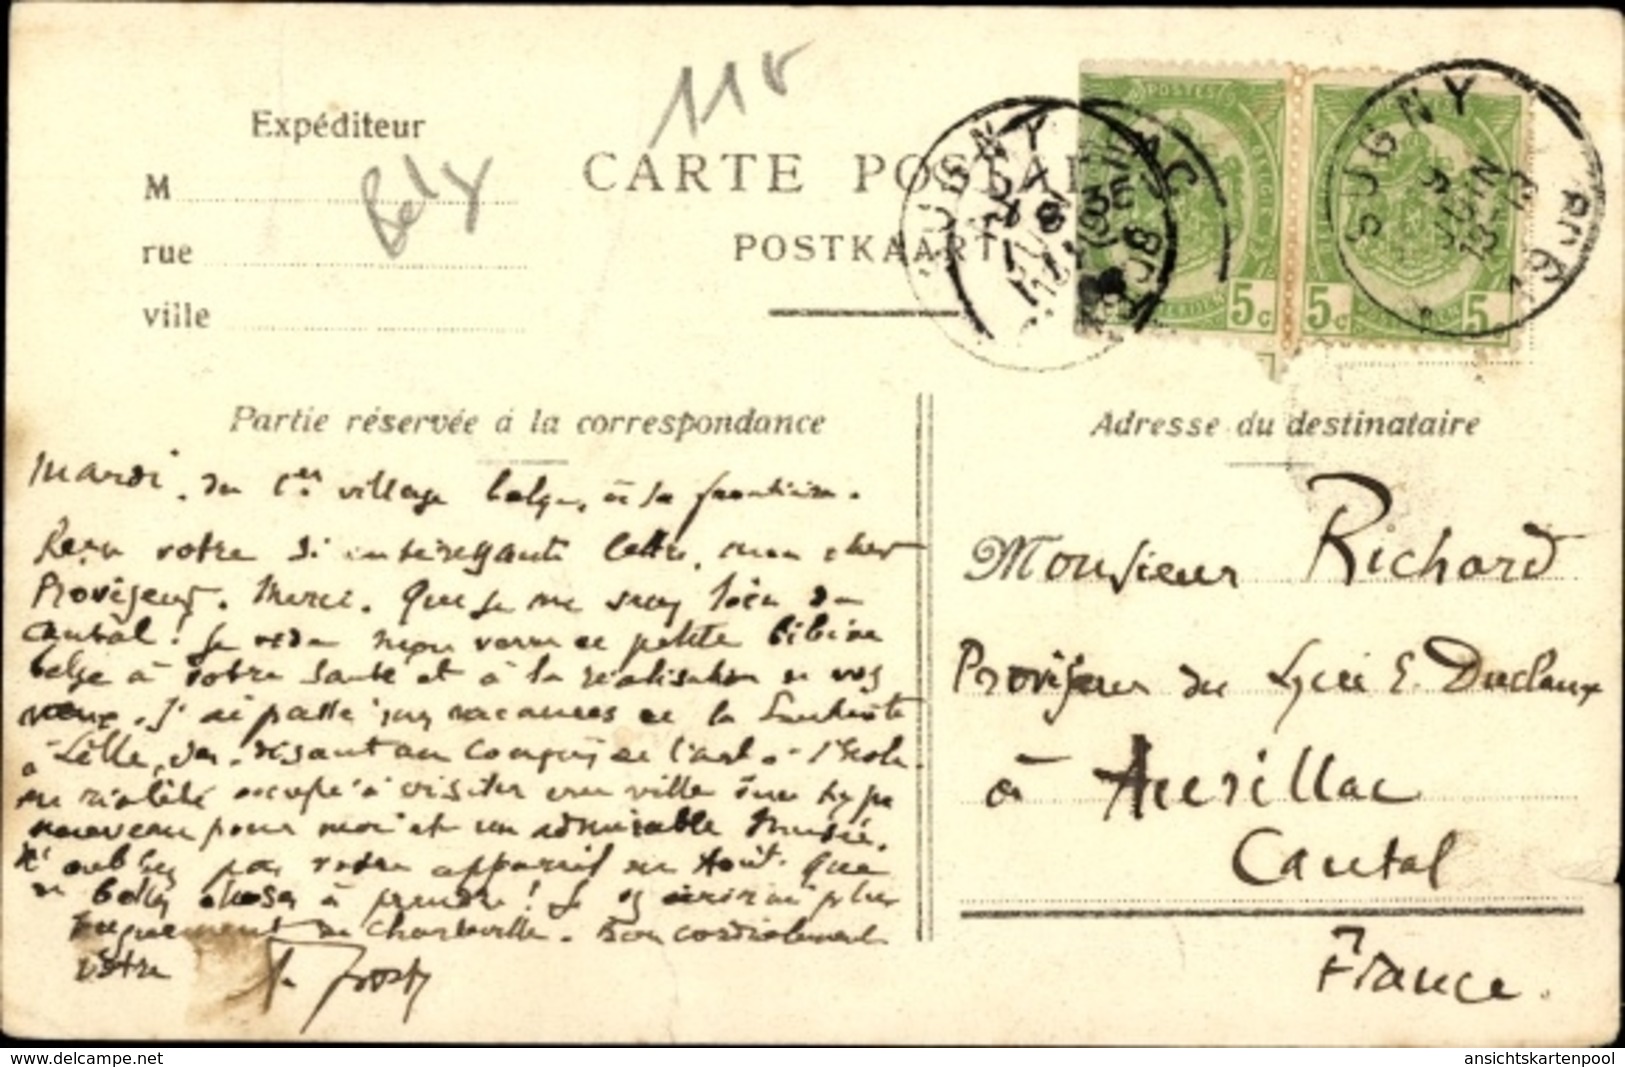 118
Expéditeur
M
Belg
rue
ville
CARTE POSTALE
POSTKAART
POSTES
5 c
5 c
5
SUGNY
9
JUIN
13-19
1908
SUGNY
Partie réservée à la correspondance
Adresse du destinataire
Mardi. du 1er village belge, à la frontière.
Reçu votre si intéressante lettre, mon cher
Proviseur. Merci. Que je me suis loin du
Cantal! Je vide mon verre de petite bibine
belge à votre santé et à la réalisation de vos
vœux. J'ai passé mes vacances de la Pentecôte
à Lille, soi-disant au Congrès de l'art à l'Ecole.
en réalité occupé à visiter une ville d'un type
nouveau pour moi et un admirable Musée.
N'oubliez pas votre appareil en Août. Que
de belles choses à prendre! Je vs écrirai plus
longuement de Charleville. Bien cordialement
vôtre
Monsieur Richard
Proviseur du Lycée E. Duclaux
à Aurillac
Cantal
France.
www.delcampe.net
ansichtskartenpool